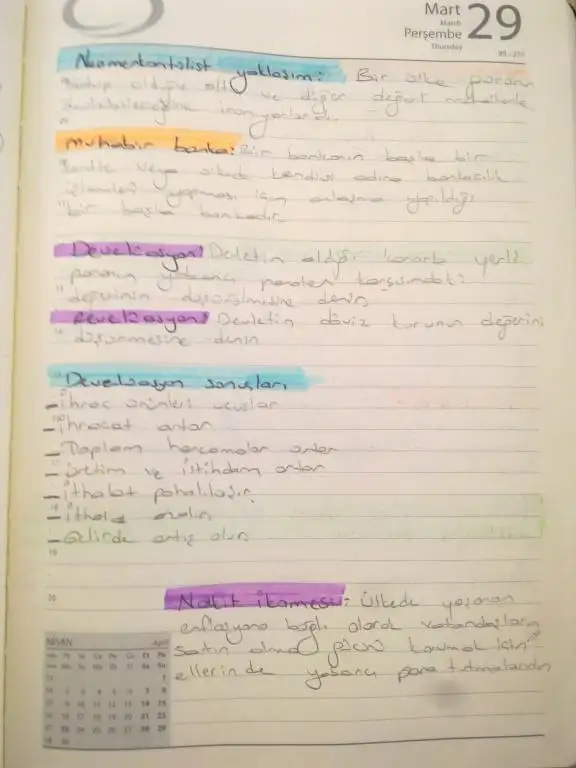 Mart
March
29
Perşembe
Thursday
Neomerkantalist yaklaşım: Bir ülke paranın
sahip olduğu altın ve diğer değerli metallerle
inanıyorlardı.
muhabir banka: Bir bankanın başka bir
kentte veya ülkede kendisi adına bankacılık
işlemleri yapması için anlaşma yaptığı
bir başka bankadır.
Devalüasyon: Devletin aldığı kararla yerli
paranın yabancı paralar karşısındaki
değerinin düşürülmesine denir.
Revalüasyon: Devletin döviz kurunun değerini
düşürmesine denir
Devalüasyon sonuçları
- İhraç ürünleri ucuzlar
- İhracat artar
- Toplam harcamalar artar
- üretim ve istihdam artar
- İthalat pahalılaşır
- İthalat azalır
- Gelirde artış olur
19
20
Nakit İkamesi: Ülkede yaşanan
enflasyona bağlı olarak vatandaşların
satın alma gücünü korumak için
ellerinde yabancı para tutmalarıdır
NİSAN April